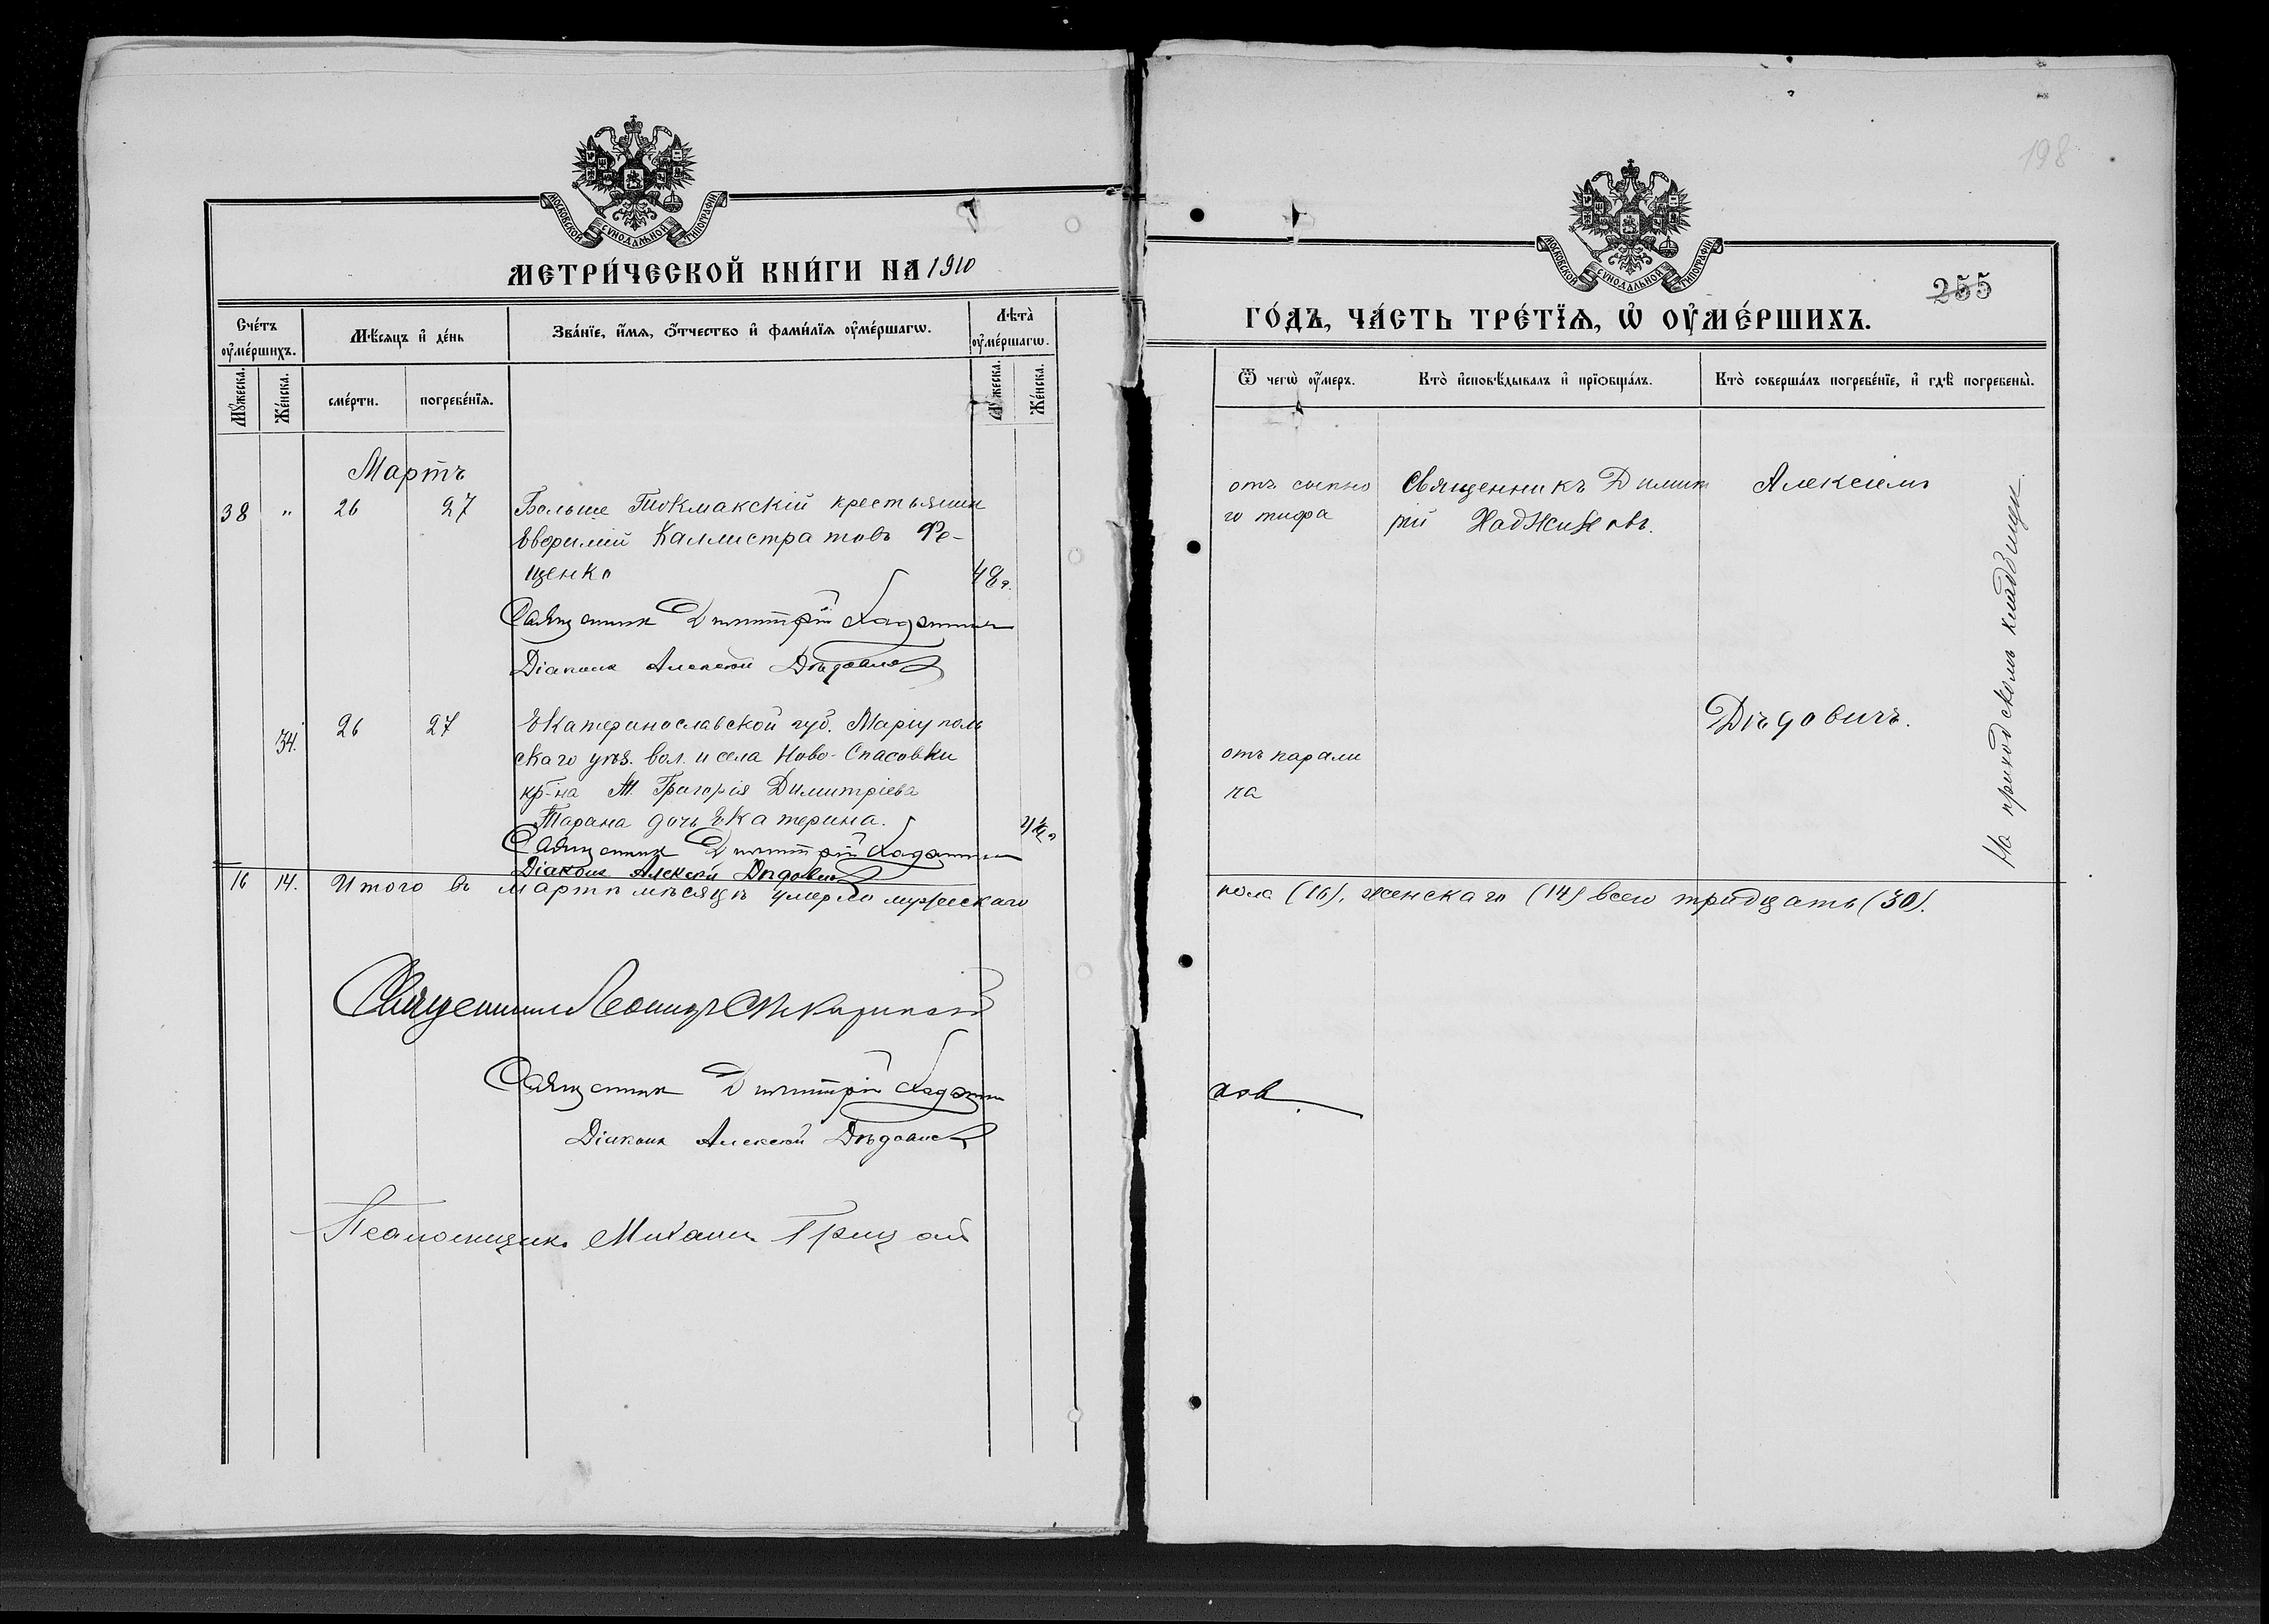 МОСКОВСКОЙ СУНОДАЛЬНОЙ ТИПОГРАФІИ
МЕТРИ́ЧЕСКОЙ КНИ́ГИ НА 1910
Сче́тъ оу҆ме́ршихъ.
Мѣ́сяцъ и҆ де́нь
Зва́нїе, и҆́мя, ѻ҆́тчество и҆ фами́лїя оу҆ме́ршагѡ.
Лѣта̀ оу҆ме́ршагѡ.
Мꙋ́жеска.
Же́нска.
сме́рти.
погребе́нїя.
Мꙋ́жеска.
Же́нска.
Мартъ
38 " 26 27 Больше Токмакскій крестьянин
Евфимій Каллистратовъ Фе-
щенко 48 г.
Священник Димитрій Хаджинов
Діаконъ Алексѣй Дѣдович
34. 26 27 Екатеринославской губ. Маріуполь
скаго уѣз. вол. и села Ново-Спасовки
кр-на М. Григорія Димитріева
Тарана дочь Екатерина.
Священник Димитрій Хаджинов
Діаконъ Алексѣй Дѣдович
16 14. Итого въ мартѣ мѣсяцѣ умерло мужескаго
Священник Леонид
Священник Димитрій Хаджи
Діаконъ Алексѣй Дѣдович
Псаломщикъ Михаил Грицай
198
МОСКОВСКОЙ СУНОДАЛЬНОЙ ТИПОГРАФІИ
255
ГО́ДЪ, ЧА́СТЬ ТРЕ́ТЇЯ, Ѡ҆ ОУ҆МЕ́РШИХЪ.
Ѿ чегѡ̀ оу҆́меръ.
Кто̀ и҆сповѣ́дывалъ и҆ прїѻбща́лъ.
Кто̀ соверша́лъ погребе́нїе, и҆ гдѣ̀ погребены̀.
отъ сыпно Священникъ Димит Алексіемъ
го тифа рій Хаджиновъ.
Дѣдовичъ.
отъ парали
ча
На приходскомъ кладбищѣ.
пола (16), женскаго (14) всего тридцать (30).
нов